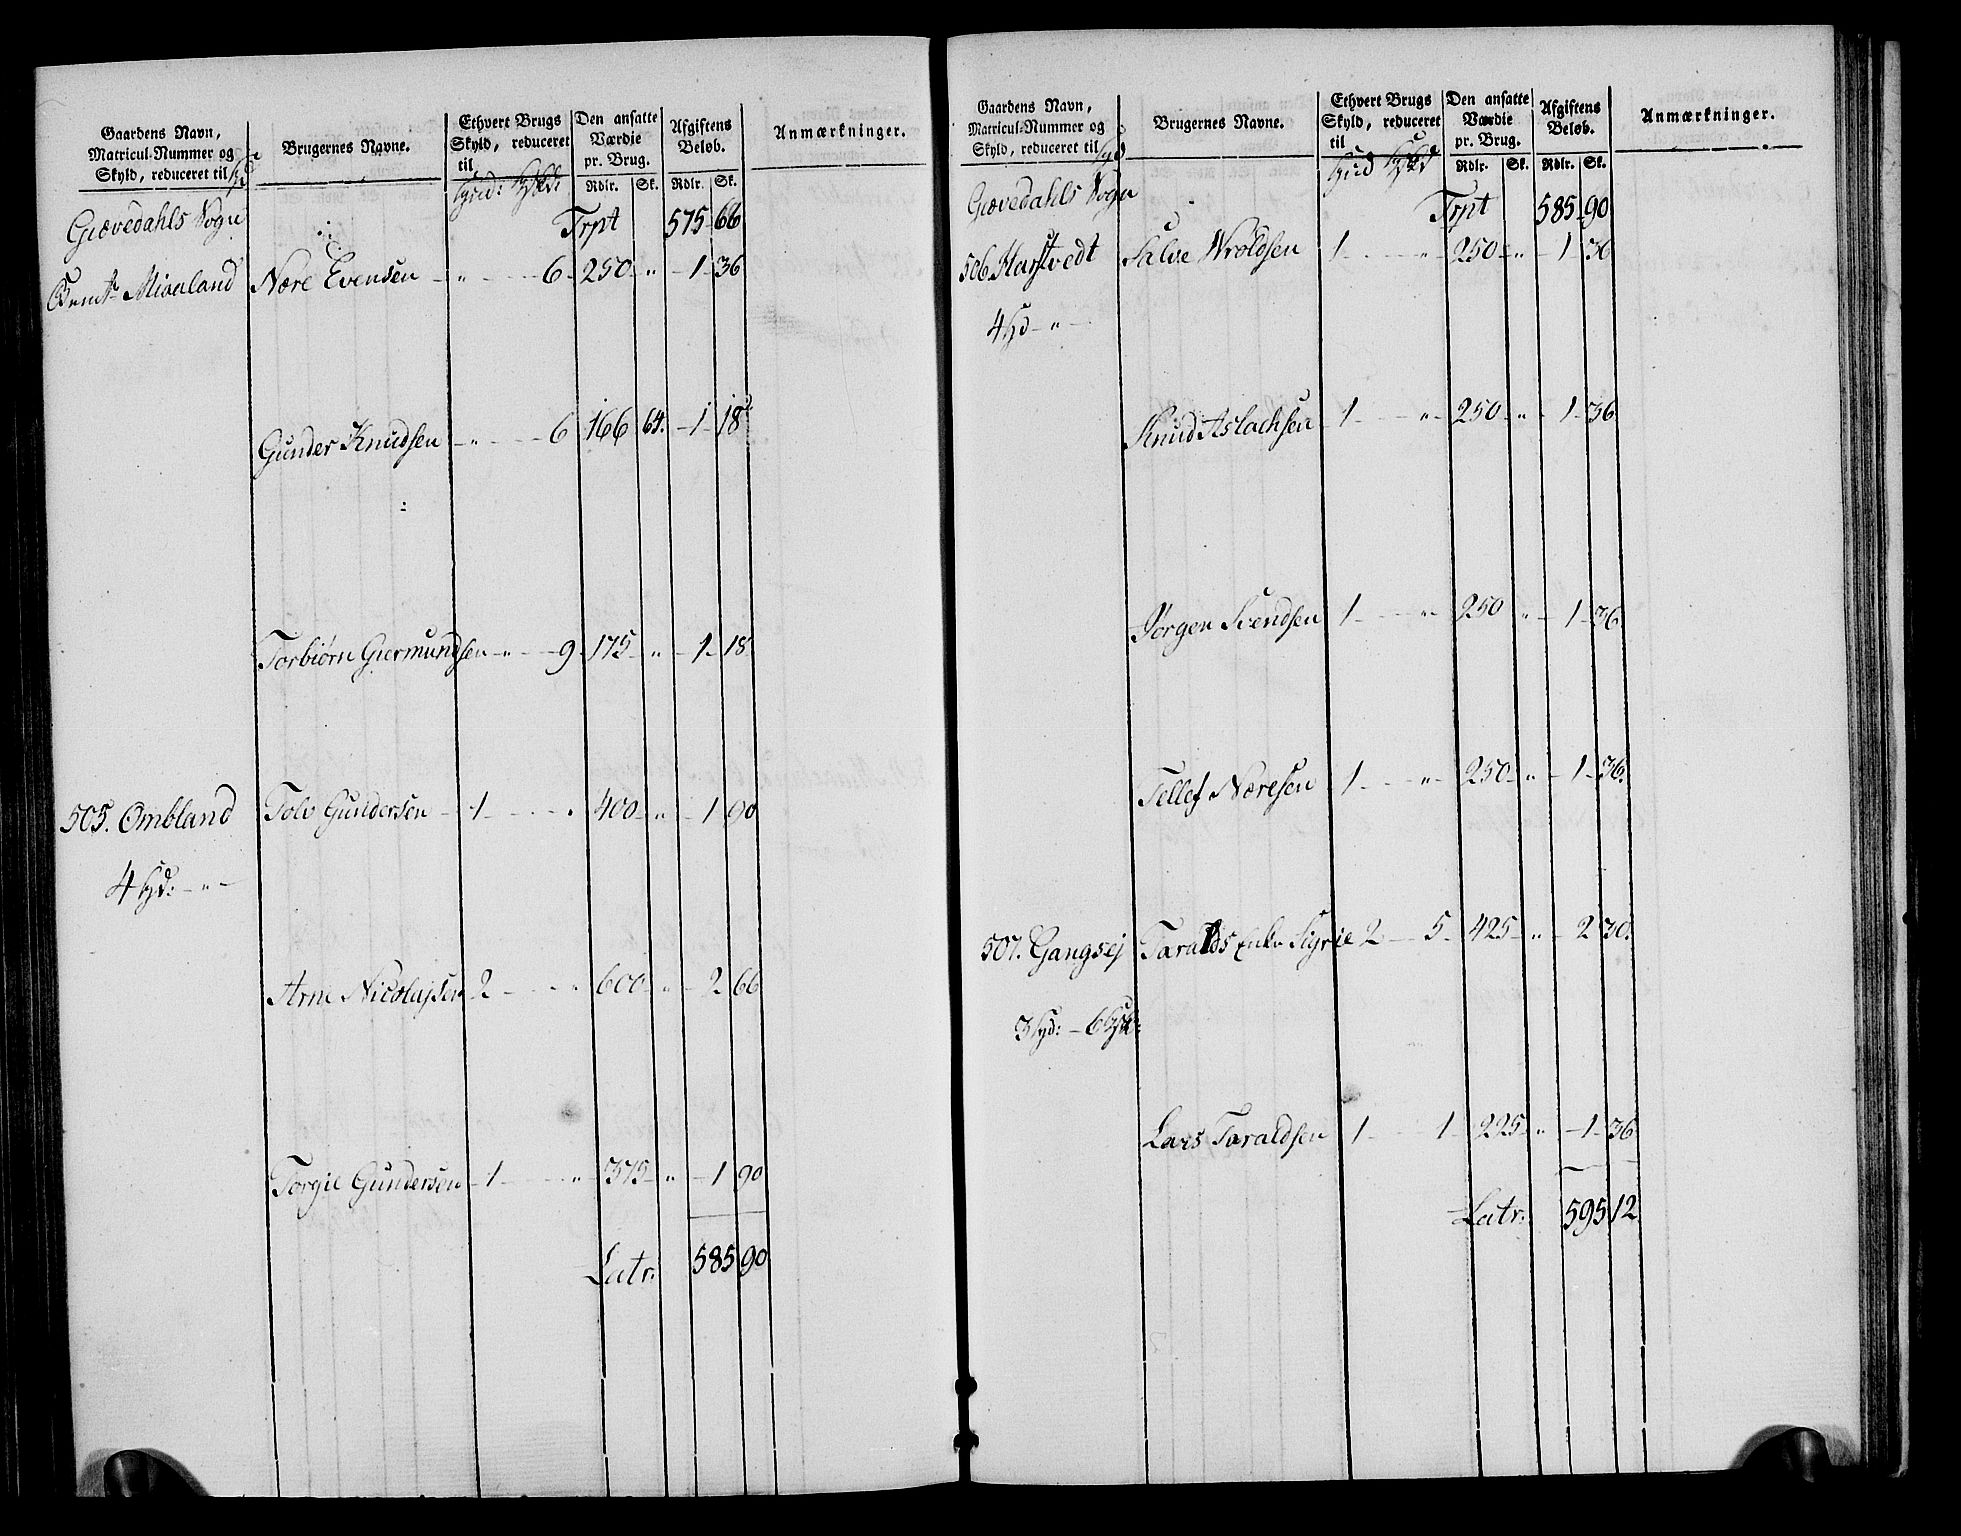 Gaardens Navn,
Matricul-Nummer og
Skyld, reduceret til
Brugernes Navne.
Ethvert Brugs
Skyld, reduceret
til
Den ansatte
Værdie
pr. Brug.
Rdlr. Sk.
Afgiftens
Beløb.
Rdlr. Sk.
Anmærkninger.
Giævedahls Sogn Trpt 575 66
Miaaland Nere Evensen - " - 6 - 250 - " - 1 - 36
Gunder Knudsen - " - 6 166 64. - 1 - 18
Torbiørn Giermundsen - " - 9 - 175 - " - 1 - 18
505. Ombland Tolv Gundersen - 1 - 400 - " - 1 90
4 - " -
Arne Nicolajsen 2 - " 600 - " - 2 66
Torgie Gundersen - 1 - " - 375 - " - 1 90
Latr: 585 90
Gaardens Navn,
Matricul-Nummer og
Skyld, reduceret til
Brugernes Navne.
Ethvert Brugs
Skyld, reduceret
til
Den ansatte
Værdie
pr. Brug.
Rdlr. Sk.
Afgiftens
Beløb.
Rdlr. Sk.
Anmærkninger.
Giævedahls Sogn Trpt 585 90
506 Harstvedt Salve Wroldsen 1 - " - 250 - " - 1 - 36
4 - " -
Knud Aslachsen 1 - " - 250 - " - 1 - 36
Jørgen Svendsen 1 - " - 250 " - 1 - 36
Tellef Neresen 1 - " - 250 - " - 1 - 36.
507. Gangsej Taralds Enke Sigrie 2 - 5 - 425 - " - 2 30.
3 - 6
Lars Taraldsen 1 - 1 - 225 - " - 1 - 36
Latr: 595 12